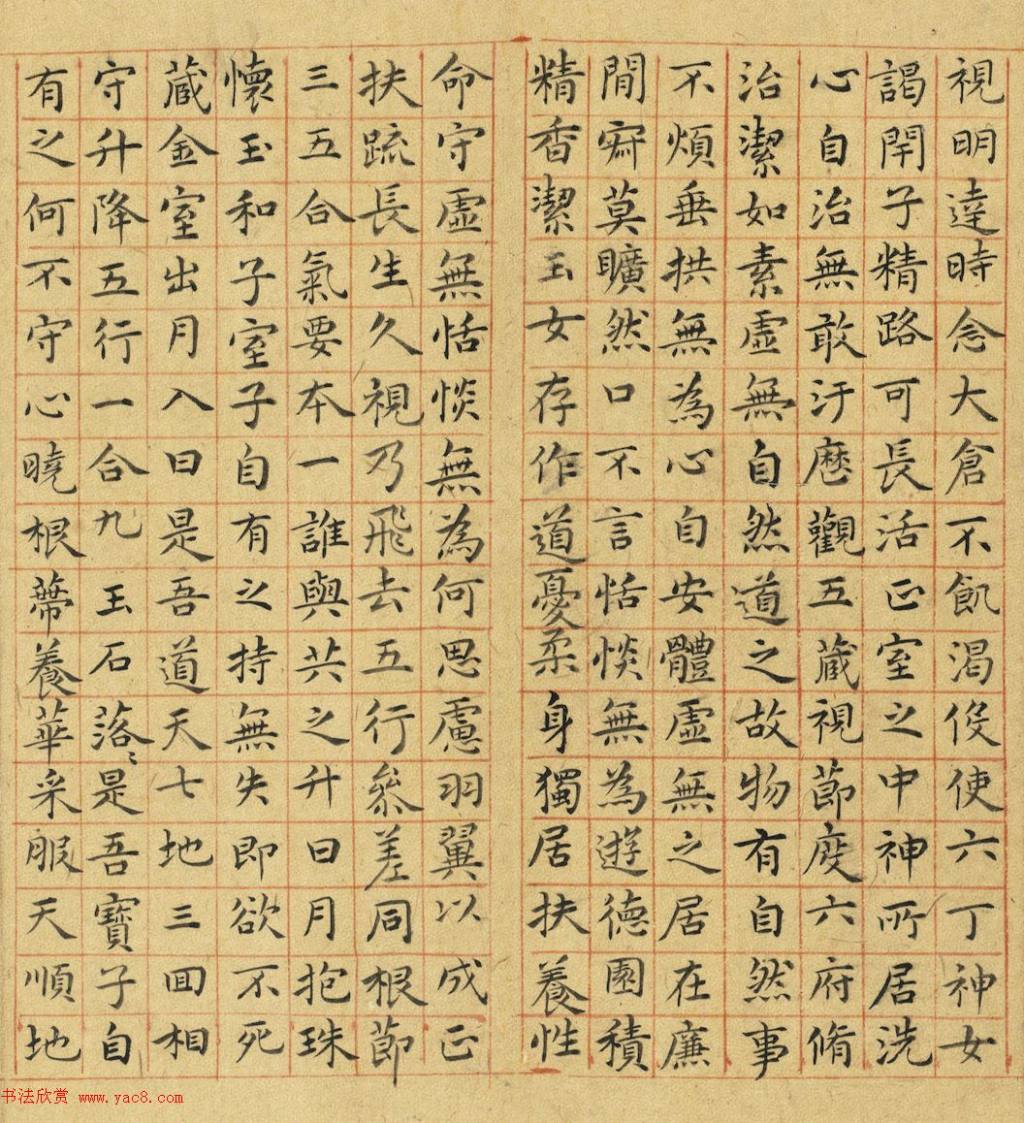 視明達時念大倉不飢渴伇使六丁神女
謁閇子精路可長活正室之中神所居洗
心自治無敢汙歷觀五藏視節度六府脩
治潔如素虛無自然道之故物有自然事
不煩垂拱無為心自安體虛無之居在廉
閒寂莫曠然口不言恬惔無為遊德園積
精香潔玉女存作道憂柔身獨居扶養性
命守虛無恬惔無為何思慮羽翼以成正
扶疏長生久視乃飛去五行參差同根節
三五合氣要本一誰與共之升日月抱珠
懷玉和子室子自有之持無失即欲不死
藏金室出月入日是吾道天七地三回相
守升降五行一合九玉石落〻是吾寶子自
有之何不守心曉根蔕養華采服天順地
书法欣赏 www.yac8.com